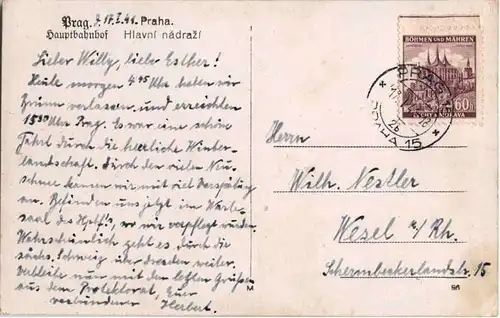 Prag. d. 17. I. 41. Praha.
Hauptbahnhof Hlavní nádraží
Lieber Willy, liebe Esther!
Heute morgen 4 45 Uhr haben wir
Brünn verlassen und erreichten
15 30 Uhr Prag. Es war eine schöne
Fahrt durch die herrliche Winter-
landschaft. Durch den vielen Neu-
schnee kamen wir mit viel Verspätung
an. Befinden uns jetzt im Warte-
saal des Hptf's, wo wir verpflegt wurden.
Wahrscheinlich geht es durch die
sächs. Schweiz über Dresden weiter.
Verbleibe nun mit den letzten Grüßen
aus dem Protektorat, Euer
verbundener Herbert.
BÖHMEN UND MÄHREN
60
ČECHY A MORAVA
PRAG
PRAHA 15
Herrn
Wilh. Nestler
Wesel a/Rh.
Schermbeckerlandstr. 15
M
86